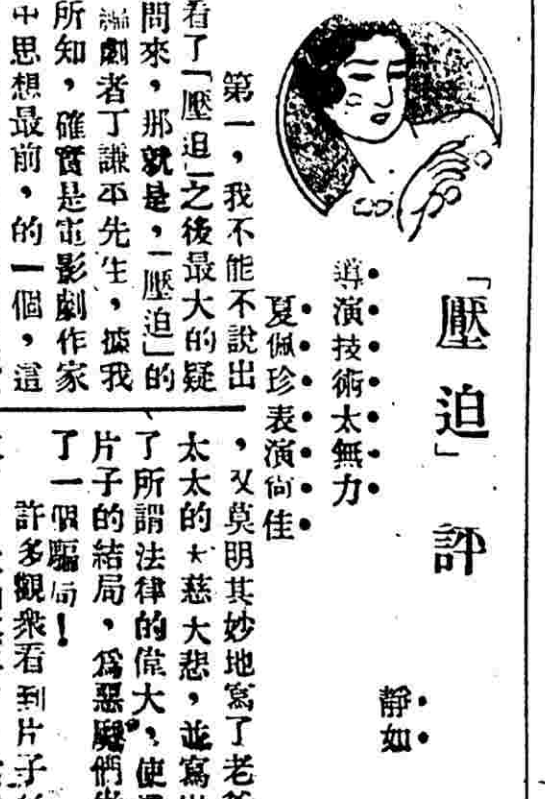 「壓迫」評
靜如
導演技術太無力
夏佩珍表演尙佳
第一，我不能不說出
看了「壓迫」之後最大的疑
問來，那就是，「壓迫」的
編劇者丁謙平先生，據我
所知，確實是電影劇作家
中思想最前，的一個，這
，又莫明其妙地寫了老爺
太太的大慈大悲，並寫出
了所謂法律的偉大，使這
片子的結局，爲惡魔們做
了一個騙局！
許多觀衆看到片子